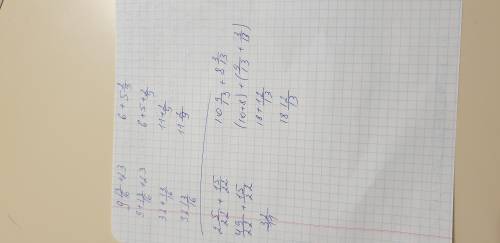 9 13/16 + 23
9 + 13/16 + 23
32 + 13/16
32 13/16
6 + 5 2/9
6 + 5 + 2/9
11 + 2/9
11 2/9
2 5/22 + 15/22
49/22 + 15/22
10 9/13 + 8 3/13
(10+8) + (9/13 + 3/13)
18 + 12/13
18 12/13